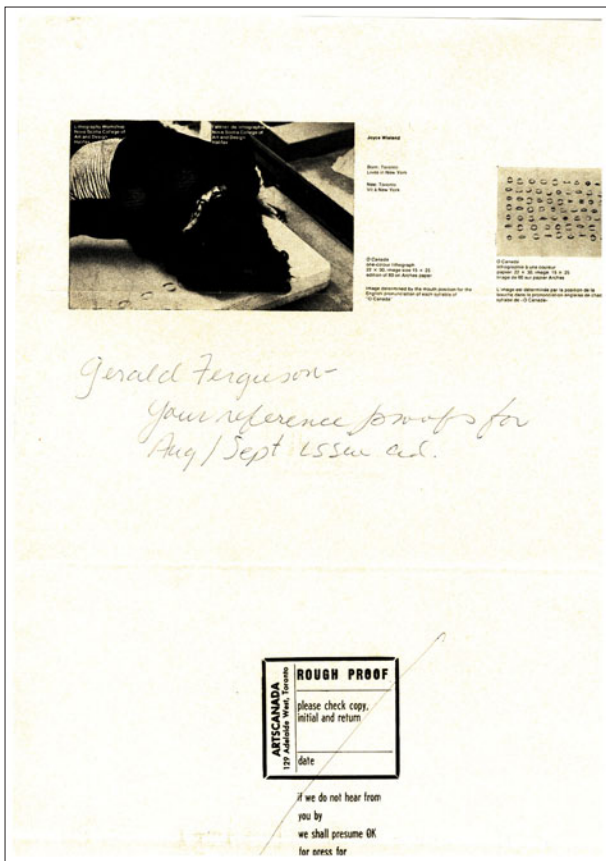 Lithography Workshop
Nova Scotia College of
Art and Design
Halifax
l'atelier de lithographie
Nova Scotia College of
Art and Design
Halifax
Joyce Wieland
Born: Toronto
Lives in New York
Née: Toronto
Vit à New York
O Canada
one-colour lithograph
22 × 30, image size 15 × 25
edition of 60 on Arches paper
Image determined by the mouth position for the
English pronunciation of each syllable of
"O Canada"
O Canada
lithographie à une couleur
papier: 22 × 30, image: 15 × 25
image de 60 sur papier Arches
L'image est déterminée par la position de la
bouche dans la prononciation anglaise de
syllabe de «O Canada»
Gerald Ferguson-
your reference proofs for
Aug/Sept issue ad.
ARTSCANADA
129 Adelaide West, Toronto
ROUGH PROOF
please check copy,
initial and return
date
if we do not hear from
you by
we shall presume OK
for press for